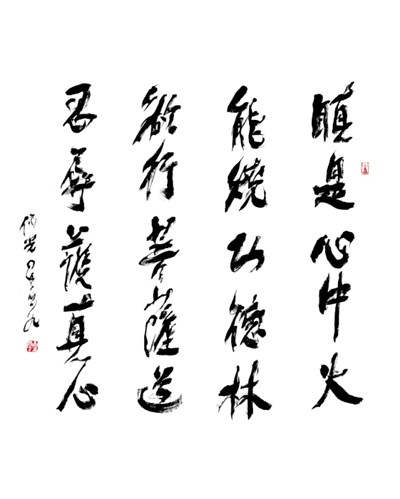 瞋是心中火
能燒功德林
欲行菩薩道
忍辱護真心